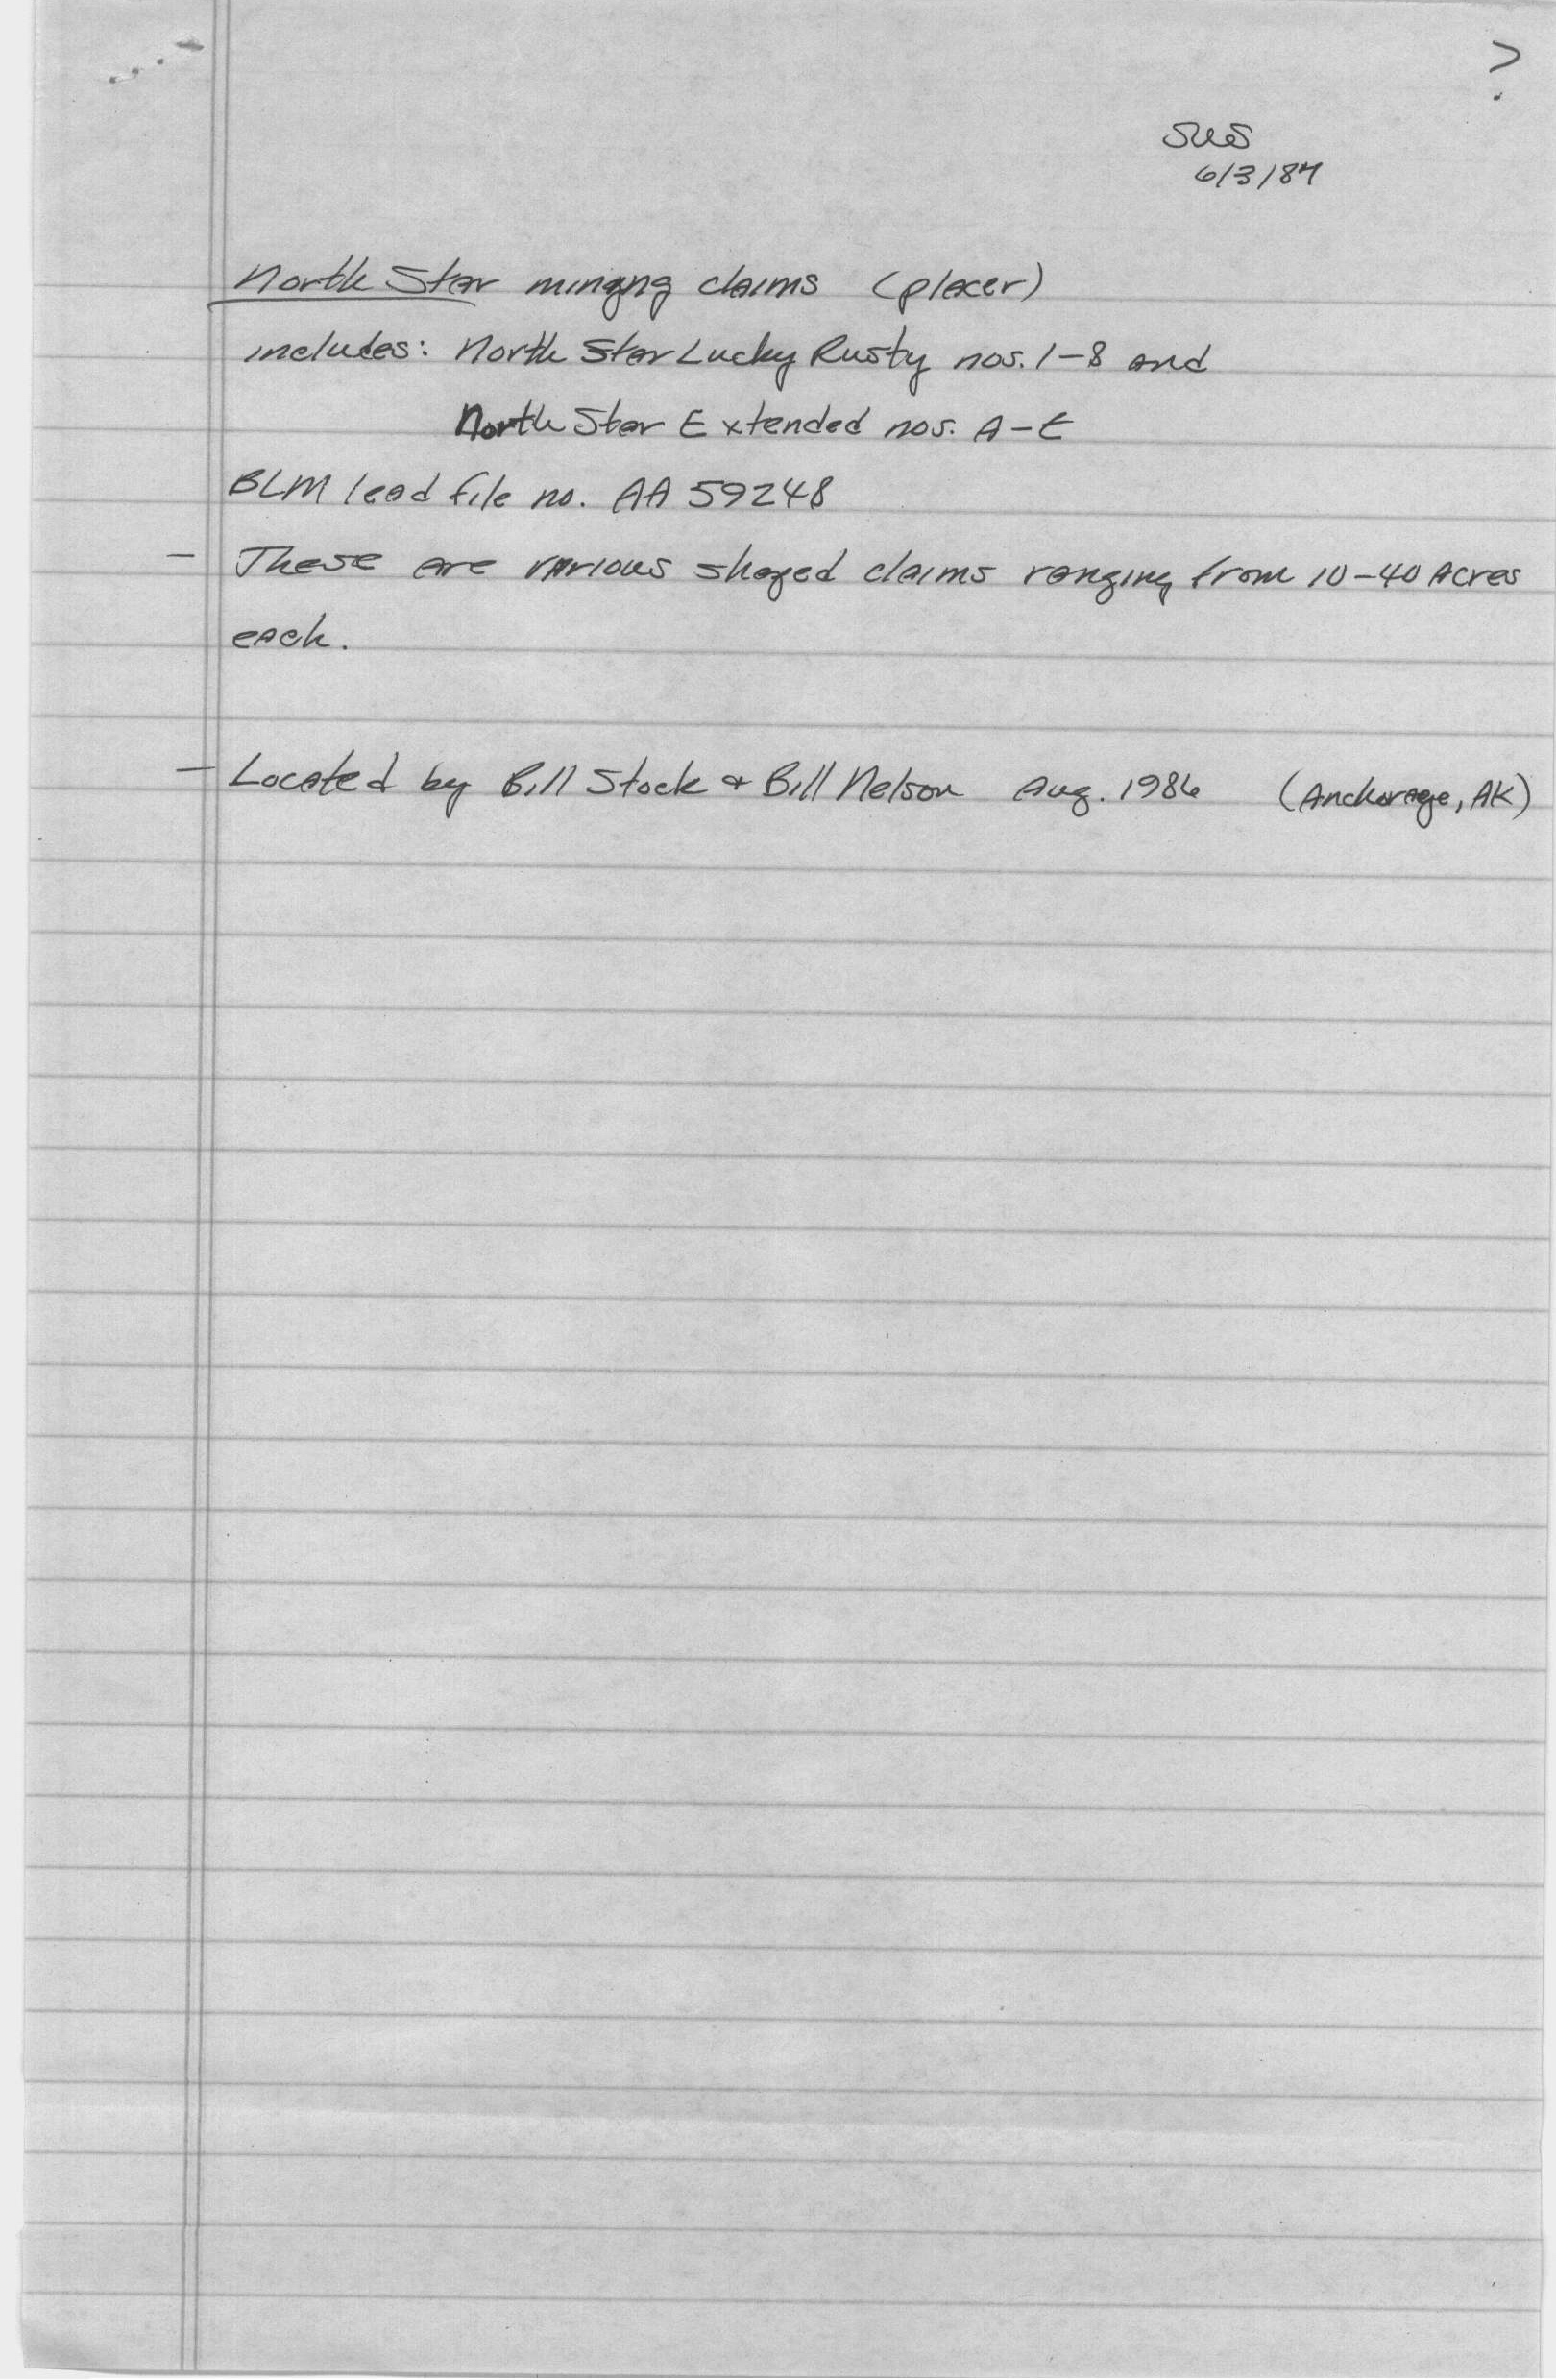 ?
SWS
6/3/87
North Star mining claims (placer)
includes: North Star Lucky Rusty nos. 1-8 and
North Star Extended nos. A-E
BLM lead file no. AA 59248
- These are various shaped claims ranging from 10-40 Acres
each.
- Located by Bill Stock & Bill Nelson Aug. 1986 (Anchorage, AK)